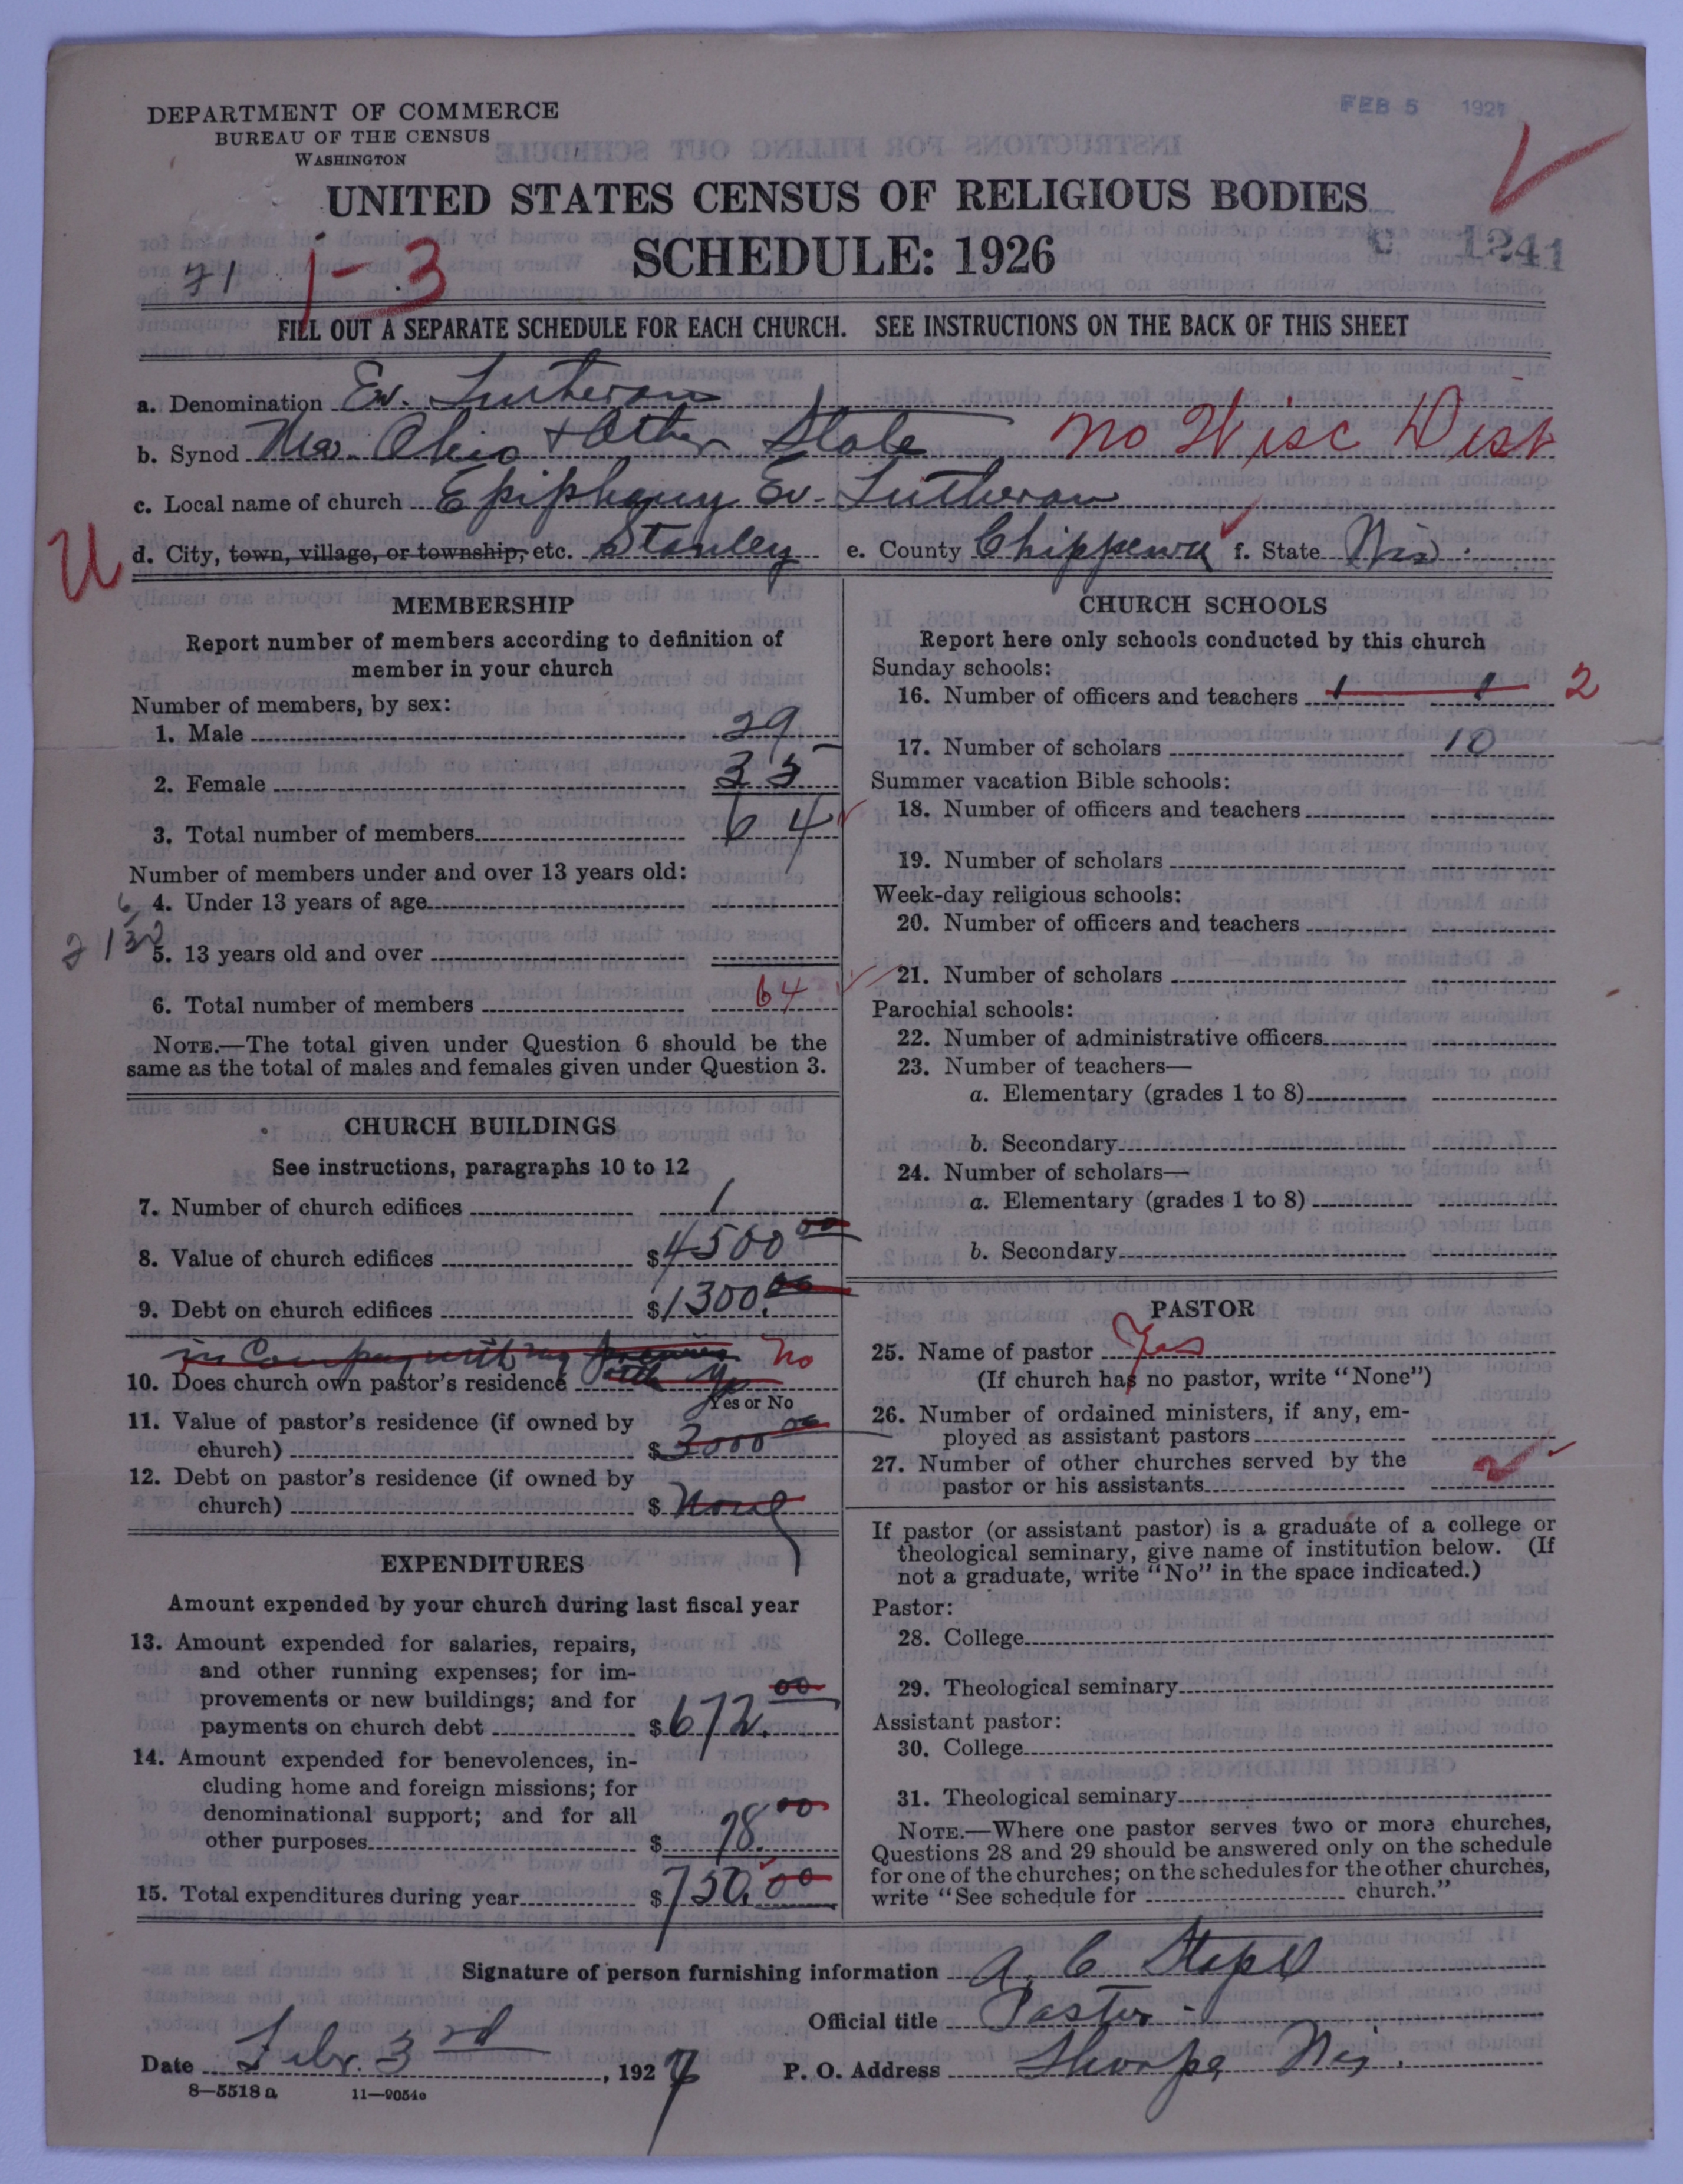 DEPARTMENT OF COMMERCE
BUREAU OF THE CENSUS
WASHINGTON
FEB 5 1927
UNITED STATES CENSUS OF RELIGIOUS BODIES
SCHEDULE: 1926
1-3
C 1241
FILL OUT A SEPARATE SCHEDULE FOR EACH CHURCH. SEE INSTRUCTIONS ON THE BACK OF THIS SHEET
a. Denomination Ev. Lutheran
b. Synod Ohio + Other State no Wisc Dist
c. Local name of church Epiphany Ev. Lutheran
U d. City, town, village, or township, etc. Stanley e. County Chippewa f. State Wis.
MEMBERSHIP
Report number of members according to definition of member in your church
Number of members, by sex:
1. Male 29
2. Female 35
3. Total number of members 64
Number of members under and over 13 years old:
4. Under 13 years of age
5. 13 years old and over
6. Total number of members 64
NOTE.—The total given under Question 6 should be the
same as the total of males and females given under Question 3.
CHURCH BUILDINGS
See instructions, paragraphs 10 to 12
7. Number of church edifices 1
8. Value of church edifices $4500.00
9. Debt on church edifices $1300.00
in Company with my
10. Does church own pastor's residence no
Yes or No
11. Value of pastor's residence (if owned by
church) $ 3000 00
12. Debt on pastor's residence (if owned by
church) $ None
EXPENDITURES
Amount expended by your church during last fiscal year
13. Amount expended for salaries, repairs,
and other running expenses; for im-
provements or new buildings; and for
payments on church debt $672.00
14. Amount expended for benevolences, in-
cluding home and foreign missions; for
denominational support; and for all
other purposes $ 78.00
15. Total expenditures during year $750.00
CHURCH SCHOOLS
Report here only schools conducted by this church
Sunday schools:
16. Number of officers and teachers 1 1 2
17. Number of scholars 10
Summer vacation Bible schools:
18. Number of officers and teachers
19. Number of scholars
Week-day religious schools:
20. Number of officers and teachers
21. Number of scholars
Parochial schools:
22. Number of administrative officers
23. Number of teachers—
a. Elementary (grades 1 to 8)
b. Secondary
24. Number of scholars—
a. Elementary (grades 1 to 8)
b. Secondary
PASTOR
25. Name of pastor Yes
(If church has no pastor, write "None")
26. Number of ordained ministers, if any, em-
ployed as assistant pastors
27. Number of other churches served by the
pastor or his assistants
If pastor (or assistant pastor) is a graduate of a college or
theological seminary, give name of institution below. (If
not a graduate, write "No" in the space indicated.)
Pastor:
28. College
29. Theological seminary
Assistant pastor:
30. College
31. Theological seminary
NOTE.—Where one pastor serves two or more churches,
Questions 28 and 29 should be answered only on the schedule
for one of the churches; on the schedules for the other churches,
write "See schedule for church."
Signature of person furnishing information A. C. Stapel
Official title Pastor
Date Febr. 3rd, 1927 P. O. Address Thorp, Wis.
8—5518 a 11—9054e